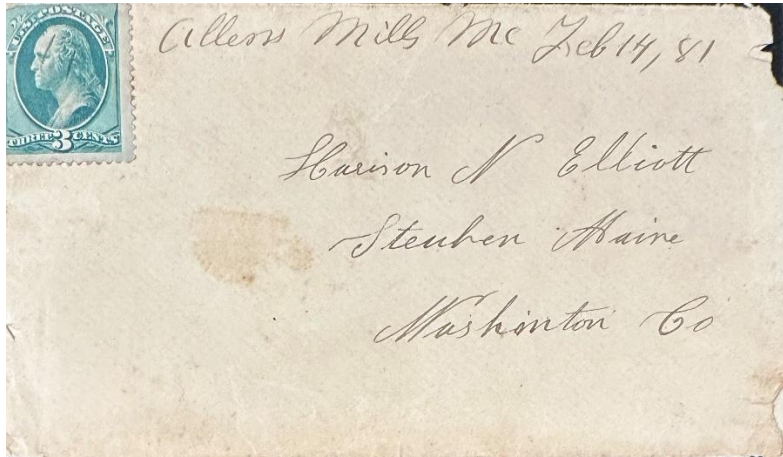 U.S. POSTAGE
THREE 3 CENTS
Allens Mills Me Feb 14, 81
Harison N Elliott
Steuben Maine
Washinton Co